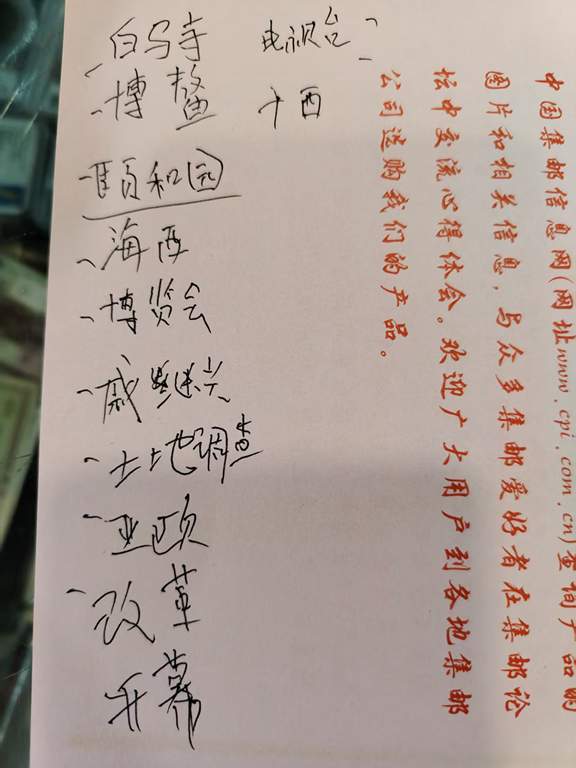 白马寺 电视台
博鳌 十西
颐和园
海西
博览会
戚继光
土地调查
亚欧
改革
开幕
中国集邮信息网(网址www.cpi.com.cn)查询产品的
图片和相关信息,与众多集邮爱好者在集邮论
坛中交流心得体会。欢迎广大用户到各地集邮
公司选购我们的产品。